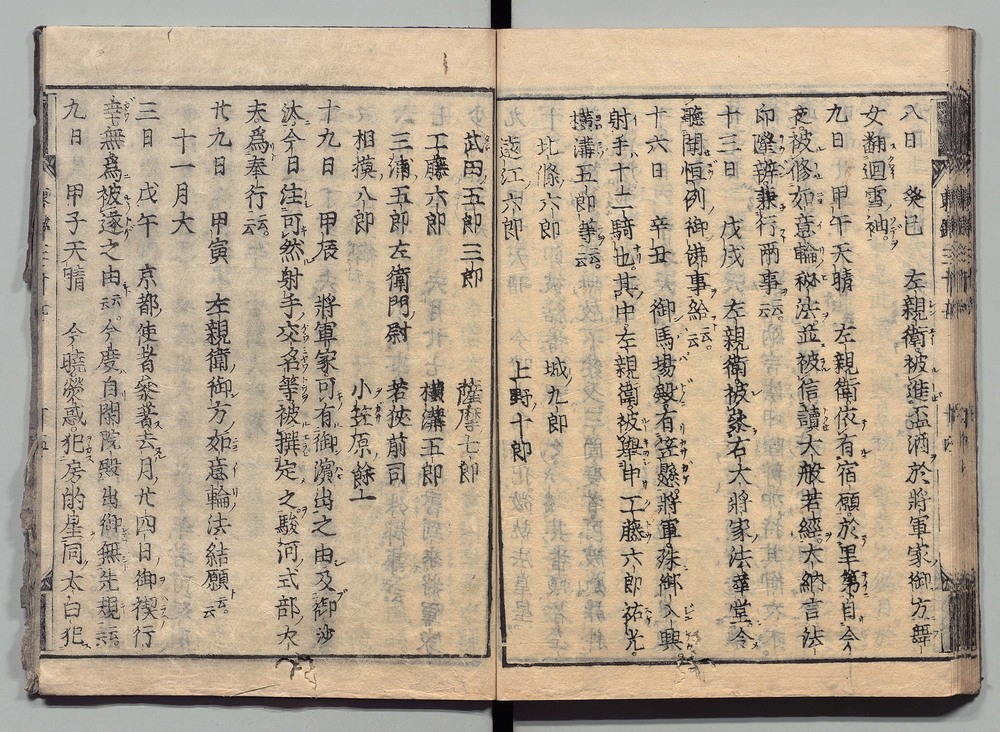 八日　癸巳　左親衛被進盃酒於將軍家御方舞
女翻迴雪袖。
九日　甲午天晴　左親衛依有宿願。於里第自今
夜被修如意輪秘法並被信讀大般若經。大納言法
印隆辨兼行両事云云。
十三日　戊戌　左親衛被參右大將家法華堂。令
聽聞恒例御佛事給云云。
十六日　辛丑　御馬場殿有笠懸。將軍殊御入興
射手十二騎也。其中左親衛被擧申工藤六郎祐光。
横溝五郎等云云。
北條六郎　城九郎
遠江六郎　上野十郎
武田五郎三郎　薩摩七郎
工藤六郎　横溝五郎
三浦五郎左衛門尉　若狭前司
相摸八郎　小笠原餘一
十九日　甲辰　將軍家可有御濱出之由及御沙
汰。今日注可然射手。交名等被撰定之。駿河式部大
夫爲奉行云云。
廿九日　甲寅　左親衛御方如意輪法結願云云。
十一月大
三日　戊午　京都使者參著。去月廿四日。御禊行
幸無爲被遂之由云云。今度自閑院殿出御無先規云云。
九日　甲子天晴　今曉熒惑。犯房的星。同太白犯